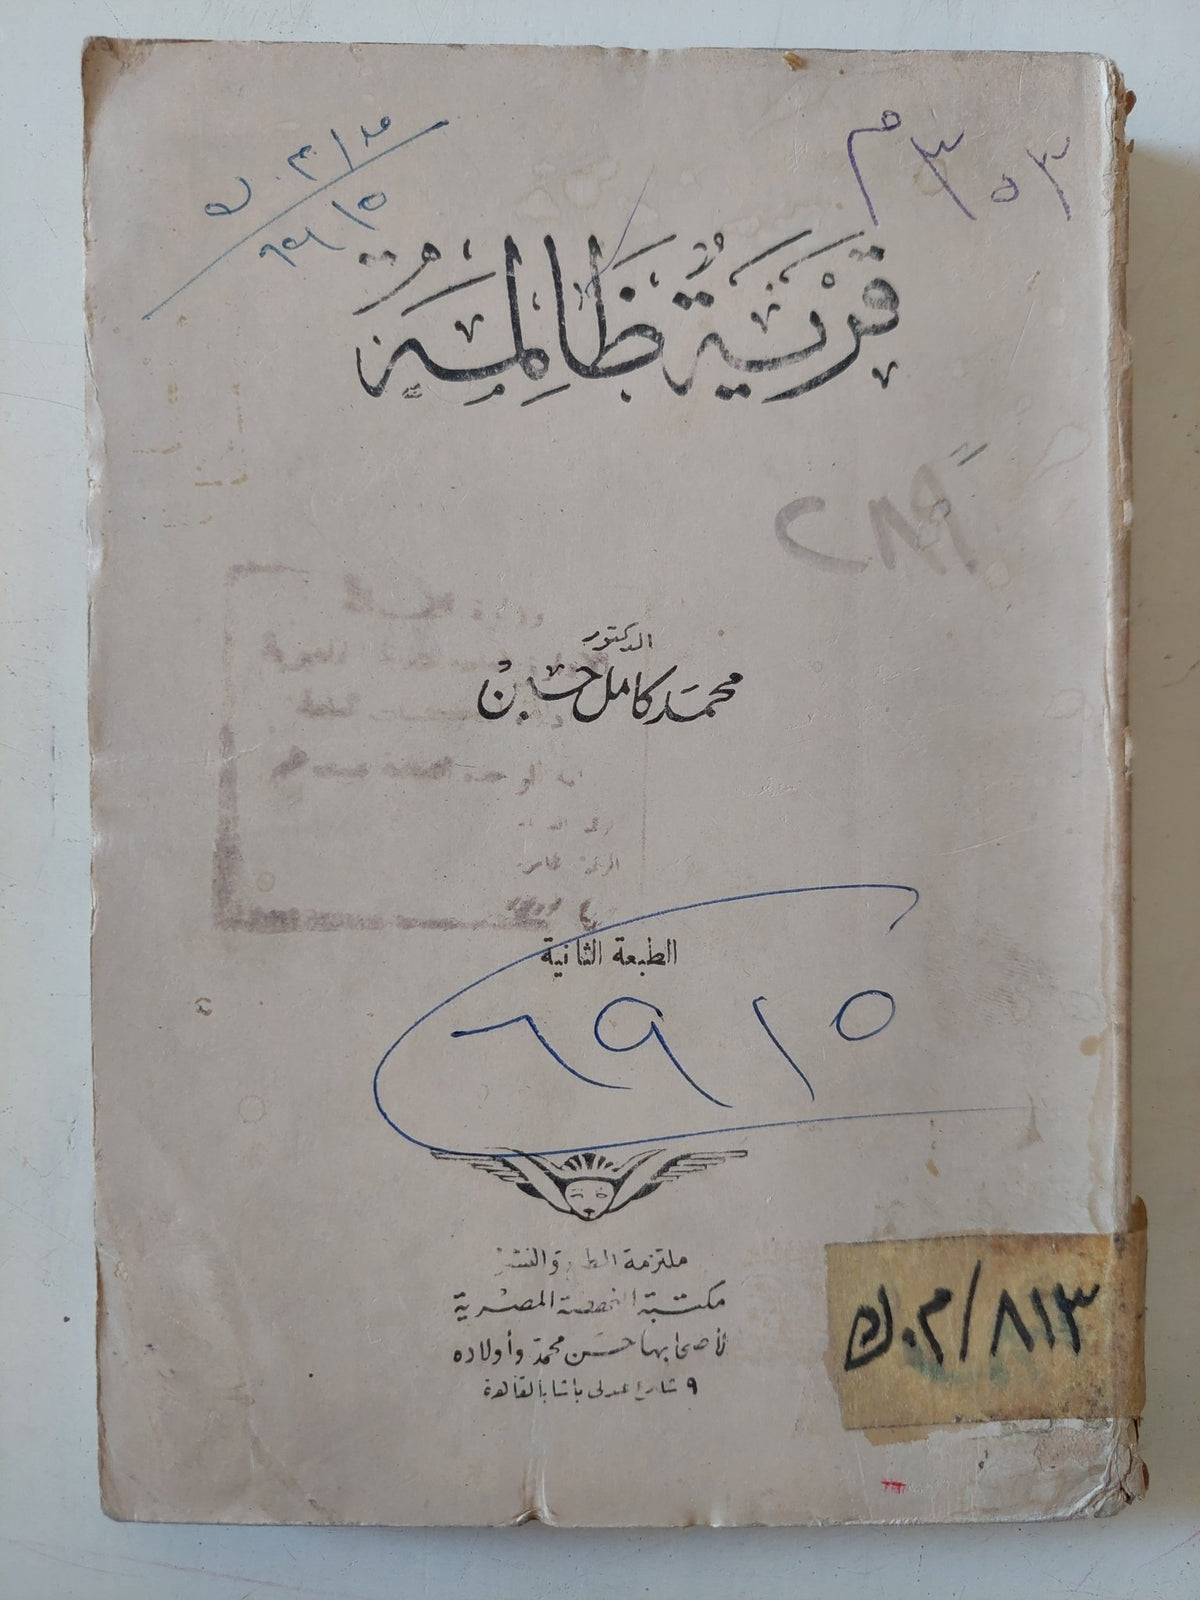 قَرْيَةٌ ظَالِمَةٌ
الدكتور
محمد كامل حسين
الطبعة الثانية
٦٩١٥
ملتزمة الطبع والنشر
مكتبة النهضة المصرية
لأصحابها حسن محمد وأولاده
٩ شارع عدلى باشا بالقاهرة
٨١٣/م.ك